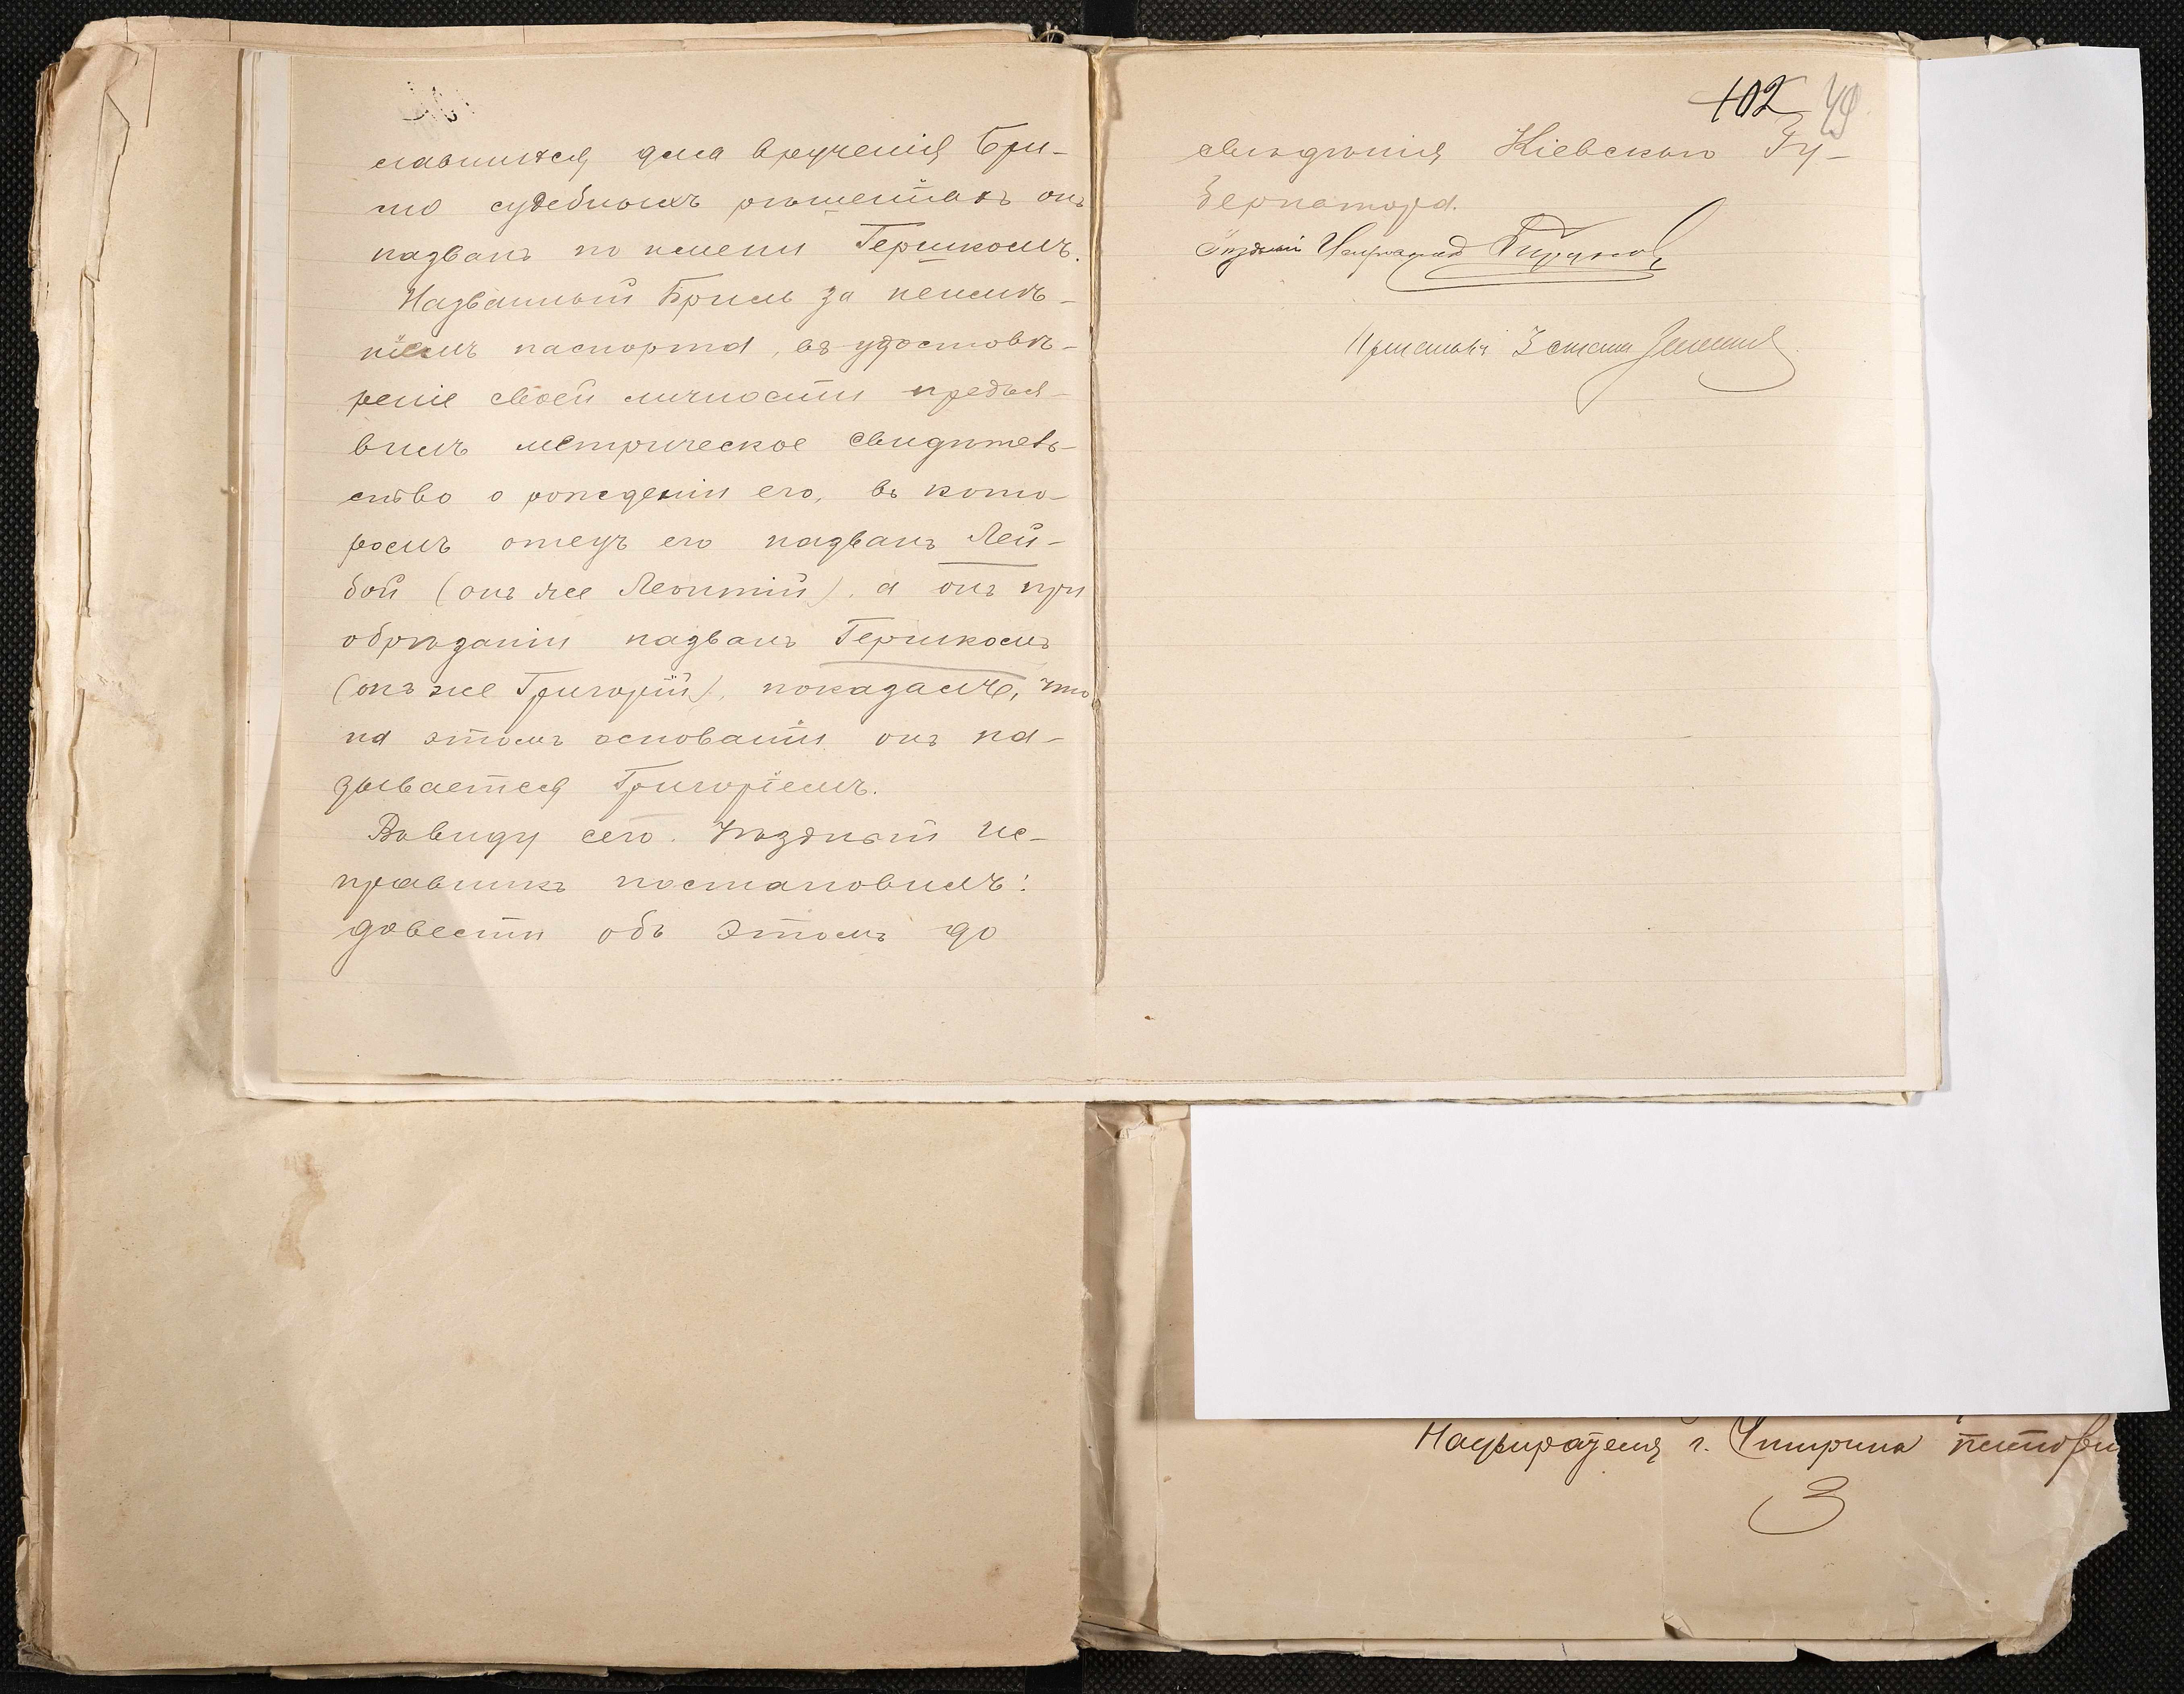 славшихся для врученія Бри-
лю судебныхъ рѣшеніяхъ онъ
названъ по имени Гершкомъ.
Названный Бриль за неимѣ-
ніемъ паспорта, въ удостовѣ-
реніе своей личности предъя-
вилъ метрическое свидѣтель-
ство о рожденіи его, въ кото-
ромъ отецъ его названъ Лей-
бой (онъ же Леонтій), а онъ при
обрѣзаніи названъ Гершкомъ
(онъ же Григорій), показалъ, что
на этомъ основаніи онъ на-
зывается Григоріемъ.
Ввиду сего Уѣздный Ис-
правникъ постановилъ:
довести объ этомъ до
102 49
свѣдѣнія Кіевскаго Гу-
бернатора.
Уѣздный Исправникъ
Надзирателя г. Чигирина
3